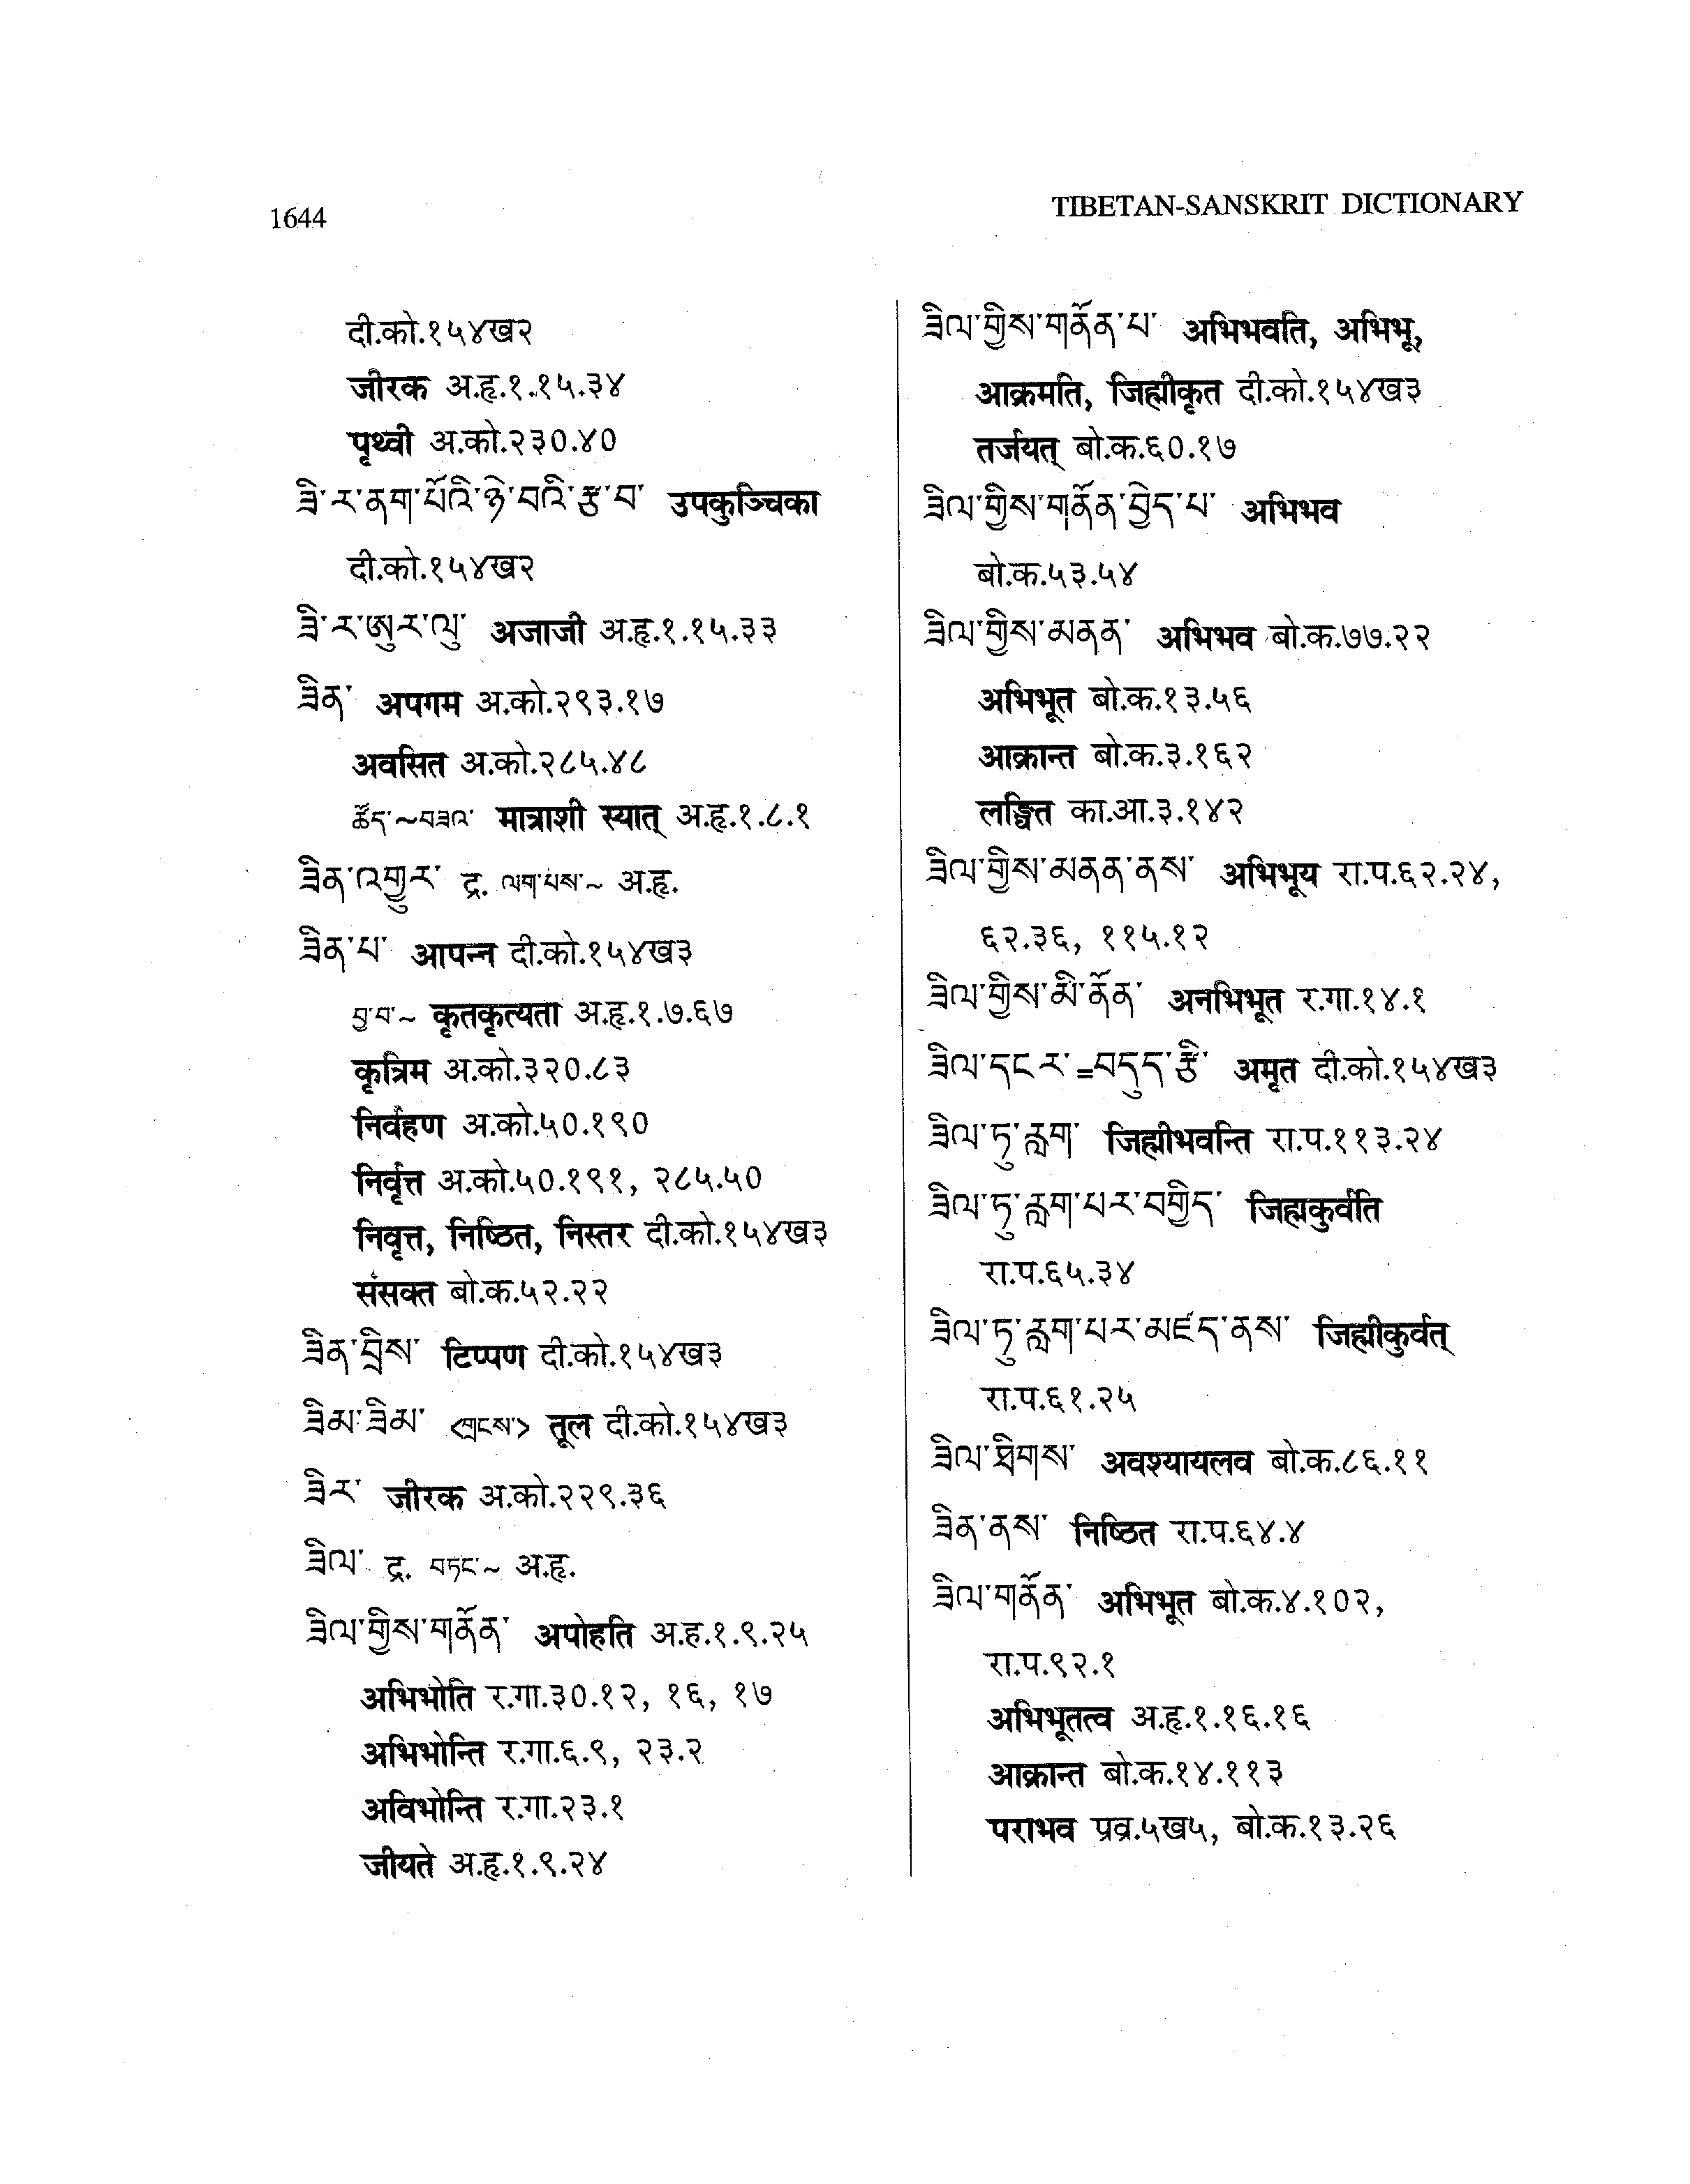 1644
TIBETAN-SANSKRIT DICTIONARY
दी.को.१५४ख२
जीरक अ.हृ.१.१५.३४
पृथ्वी अ.को.२३०.४०
ཟི་ར་ནག་པོའི་ཉེ་བའི་རྩ་བ་ उपकुञ्चिका
दी.को.१५४ख२
ཟི་ར་ཨུར་ལུ་ अजाजी अ.हृ.१.१५.३३
ཟིན་ अपगम अ.को.२९३.१७
अवसित अ.को.२८५.४८
ཚོད་~བཟའ་ मात्राशी स्यात् अ.हृ.१.८.१
ཟིན་འགྱུར་ द्र. ལག་པས་~ अ.हृ.
ཟིན་པ་ आपन्न दी.को.१५४ख३
བྱ་བ་~ कृतकृत्यता अ.हृ.१.७.६७
कृत्रिम अ.को.३२०.८३
निर्वहण अ.को.५०.१९०
निर्वृत्त अ.को.५०.१९१, २८५.५०
निवृत्त, निष्ठित, निस्तर दी.को.१५४ख३
संसक्त बो.क.५२.२२
ཟིན་བྲིས་ टिप्पण दी.को.१५४ख३
ཟིམ་ཟིམ་ <གྲངས་> तूल दी.को.१५४ख३
ཟིར་ जीरक अ.को.२२९.३६
ཟིལ་ द्र. བཏང་~ अ.हृ.
ཟིལ་གྱིས་གནོན་ अपोहति अ.ह.१.९.२५
अभिभोति र.गा.३०.१२, १६, १७
अभिभोन्ति र.गा.६.९, २३.२
अविभोन्ति र.गा.२३.१
जीयते अ.हृ.१.९.२४
ཟིལ་གྱིས་གནོན་པ་ अभिभवति, अभिभू,
आक्रमति, जिह्मीकृत दी.को.१५४ख३
तर्जयत् बो.क.६०.१७
ཟིལ་གྱིས་གནོན་བྱེད་པ་ अभिभव
बो.क.५३.५४
ཟིལ་གྱིས་མནན་ अभिभव बो.क.७७.२२
अभिभूत बो.क.१३.५६
आक्रान्त बो.क.३.१६२
लङ्घित का.आ.३.१४२
ཟིལ་གྱིས་མནན་ནས་ अभिभूय रा.प.६२.२४,
६२.३६, ११५.१२
ཟིལ་གྱིས་མི་ནོན་ अनभिभूत र.गा.१४.१
ཟིལ་དངར་=བདུད་རྩི་ अमृत दी.को.१५४ख३
ཟིལ་ཏུ་རླག་ जिह्मीभवन्ति रा.प.११३.२४
ཟིལ་ཏུ་རླག་པར་བགྱིད་ जिह्मकुर्वति
रा.प.६५.३४
ཟིལ་ཏུ་རླག་པར་མཛད་ནས་ जिह्मीकुर्वत्
रा.प.६१.२५
ཟིལ་ཐིགས་ अवश्यायलव बो.क.८६.११
ཟིན་ནས་ निष्ठित रा.प.६४.४
ཟིལ་གནོན་ अभिभूत बो.क.४.१०२,
रा.प.९२.१
अभिभूतत्व अ.हृ.१.१६.१६
आक्रान्त बो.क.१४.११३
पराभव प्रव्र.५ख५, बो.क.१३.२६